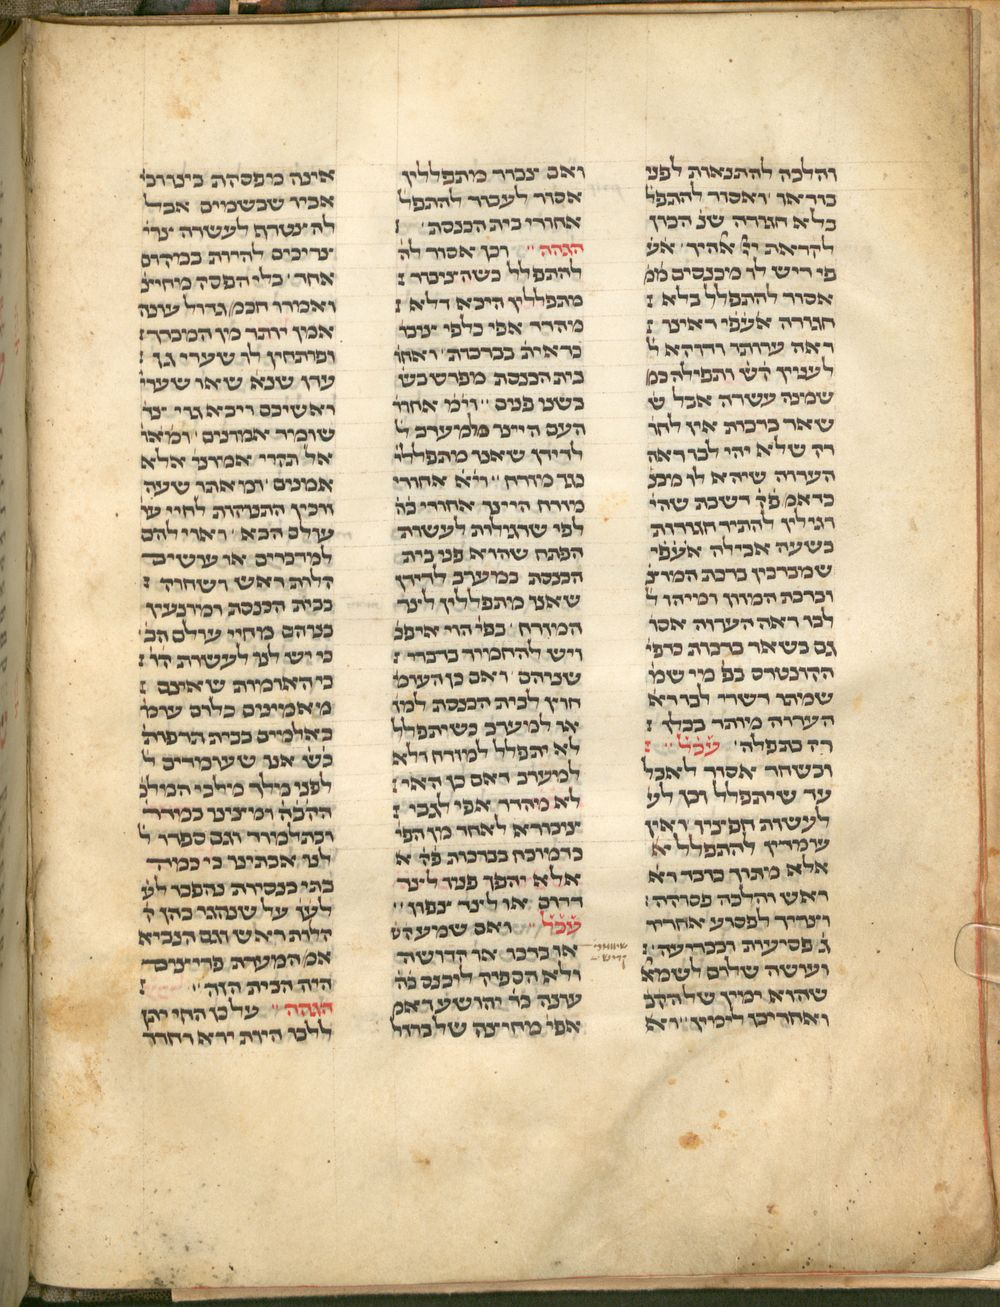 והלכה להתנאות לפני
בוראו ואסור להתפל
בלא חגורה שנ׳ הכון
לקראת אלהיך אע׳
פי ריש לו מיכנסים ממ
אסור להתפלל בלא
חגורה אעפ׳ י ראינו
ראה ערותו ודוקא ל
לענין ק׳ש ותפילה כמ
שמונה עשרה אבל ש
שאר ברכות אין לחו
רק שלא יהי לבו ראה
הערוה שיהא לו מכנ
כדאמ׳ פ׳ק דשבת שהי
רגילין להתיר חגורות
בשעה אכילה אעפ׳י
שמברכין ברכת המוצ
וברכת המזון ומיהו ל
לבו ראה הערוה אסו
גם בשאר ברכות כדפי׳
הקונטרס בפ׳ מי שמ
שמותו רשרי לבו רא
הערוה מיותר בכלך
רק בתפלה עכל
וכשחר אסור לאכל
עד שיתפלל וכן לע
לעשות חפציו ואין
עומדין להתפלל יא
אלא מתוך כובד רא
ראש והלכה פסוקה
וצריך לפסוע אחריו
ג׳ פסיעות ובכריעה
ועושה שלום לשמא
שהוא ימין של הקב׳
ואחריכו לימין ורא
ואם צבור מיתפללין
אסור לעבור להתפל
אחורי בית הכנסת
הגהה וכן אסור לה
להתפלל כשהציבור
מתפללין היכא דלא
מיהדר אפי כלפי ציבו׳
כדאית׳ בברכות ואחו
בית הכנסת מפרש בש
בשנו פנים וימ׳ אחור
העם היינו מלמערב ל
לדידן שאנו מיתפללי
כנגד מזרח ויא אחורי
מזרח היינו אחורי בה׳
לפי שרגילות לעשות
הפתח שהוא פני בית
הכנסת במערב לדידן
שאנו מיתפללין לצד
המזרח בפי הוי איפכ
ויש להחמיר בדברי
שניהם ואם כן העומ׳
חוץ לבית הכנסת למז׳
או למערב כשיתפלל
לא יתפלל למזרח ולא
למערב דאם כן האי
לא מיהדר אפי לגבי
ציבורא לאחד מן הפי׳
כדמוכח בברכות פ׳ק א
אלא יהפך פניו לצד
דרום או לצד צפון
עכל ואם שמע הש
או ברכו או קדושה
ולא הספיק ליכנס בה׳
עונה כר׳ יהושע דאמ
אפי׳ מחיצה של ברזל
קדיש
אינה מפסקת בינו ובי׳
אביו שבשמים אבל
להצטרף לעשרה צרי׳
צריכים להיות במקום
אחד בלי הפסק מחיצ׳
ואמרו חכמ׳ גדול עונה
אמן יותר מן המברך
ופותחין לו שערי גן
עדן שנא׳ שאו שערי׳
ראשיכם ויבא גוי צד׳
שומר אמונים ומאו
אל תקרי אמונו׳ אלא
אמנים ומיאותו שעה
וזכין התנוקות לחיי עו
עולם הבא ואוי להם
למדברים או עושים
קלות ראש ושחוק
בבית הכנסת ומונעין
בניהם מחיי עולם הב׳
כי יש לנו לעשות ק׳ו
כי האומות שאינם
מאמינים כלום עומ׳
כאלמים בבית תרפות
כ׳ש אנו שעומדים ל
לפני מלך מלכי המלכ
הק׳בה ומצינו במדרש
ובתלמוד וגם ספרו ל
לנו אבתינו כי כמה
בתי כנסיות נהפכו לע
לעז על שנהגו בהן ק
קלות ראש וגם הנביא
אמ׳ המערת פריצים
היה הבית הזה
הגהה על כן החי יתן
ללבו היות ירא וחרד